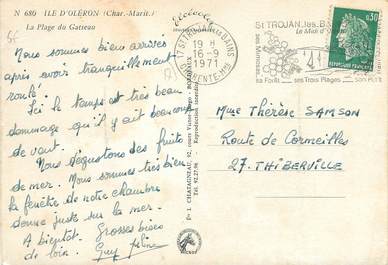 N 680 ILE D'OLÉRON (Char.-Marit.)
La Plage du Gatseau
Nous sommes bien arrivés
après avoir tranquillement
roulé!
Ici le temps est très beau
dommage qu'il y ait beaucoup
de vent.
Nous dégustons des fruits
de mer. Nous sommes très bien
la fenêtre de notre chambre
donne juste sur la mer.
A bientôt. Grosses bises
de loin. Guy
CHATAGNEAU, 92, cours Victor-Hugo - BORDEAUX
Reproduction interdite
17 ST TROJAN LES BAINS
19 H
16-9
1971
CHARENTE-Mme
ST TROJAN les BAINS
sa Forêt ses Trois Plages
0,30
Mme Thérèse SAMSON
Route de Cormeilles
27-THIBERVILLE